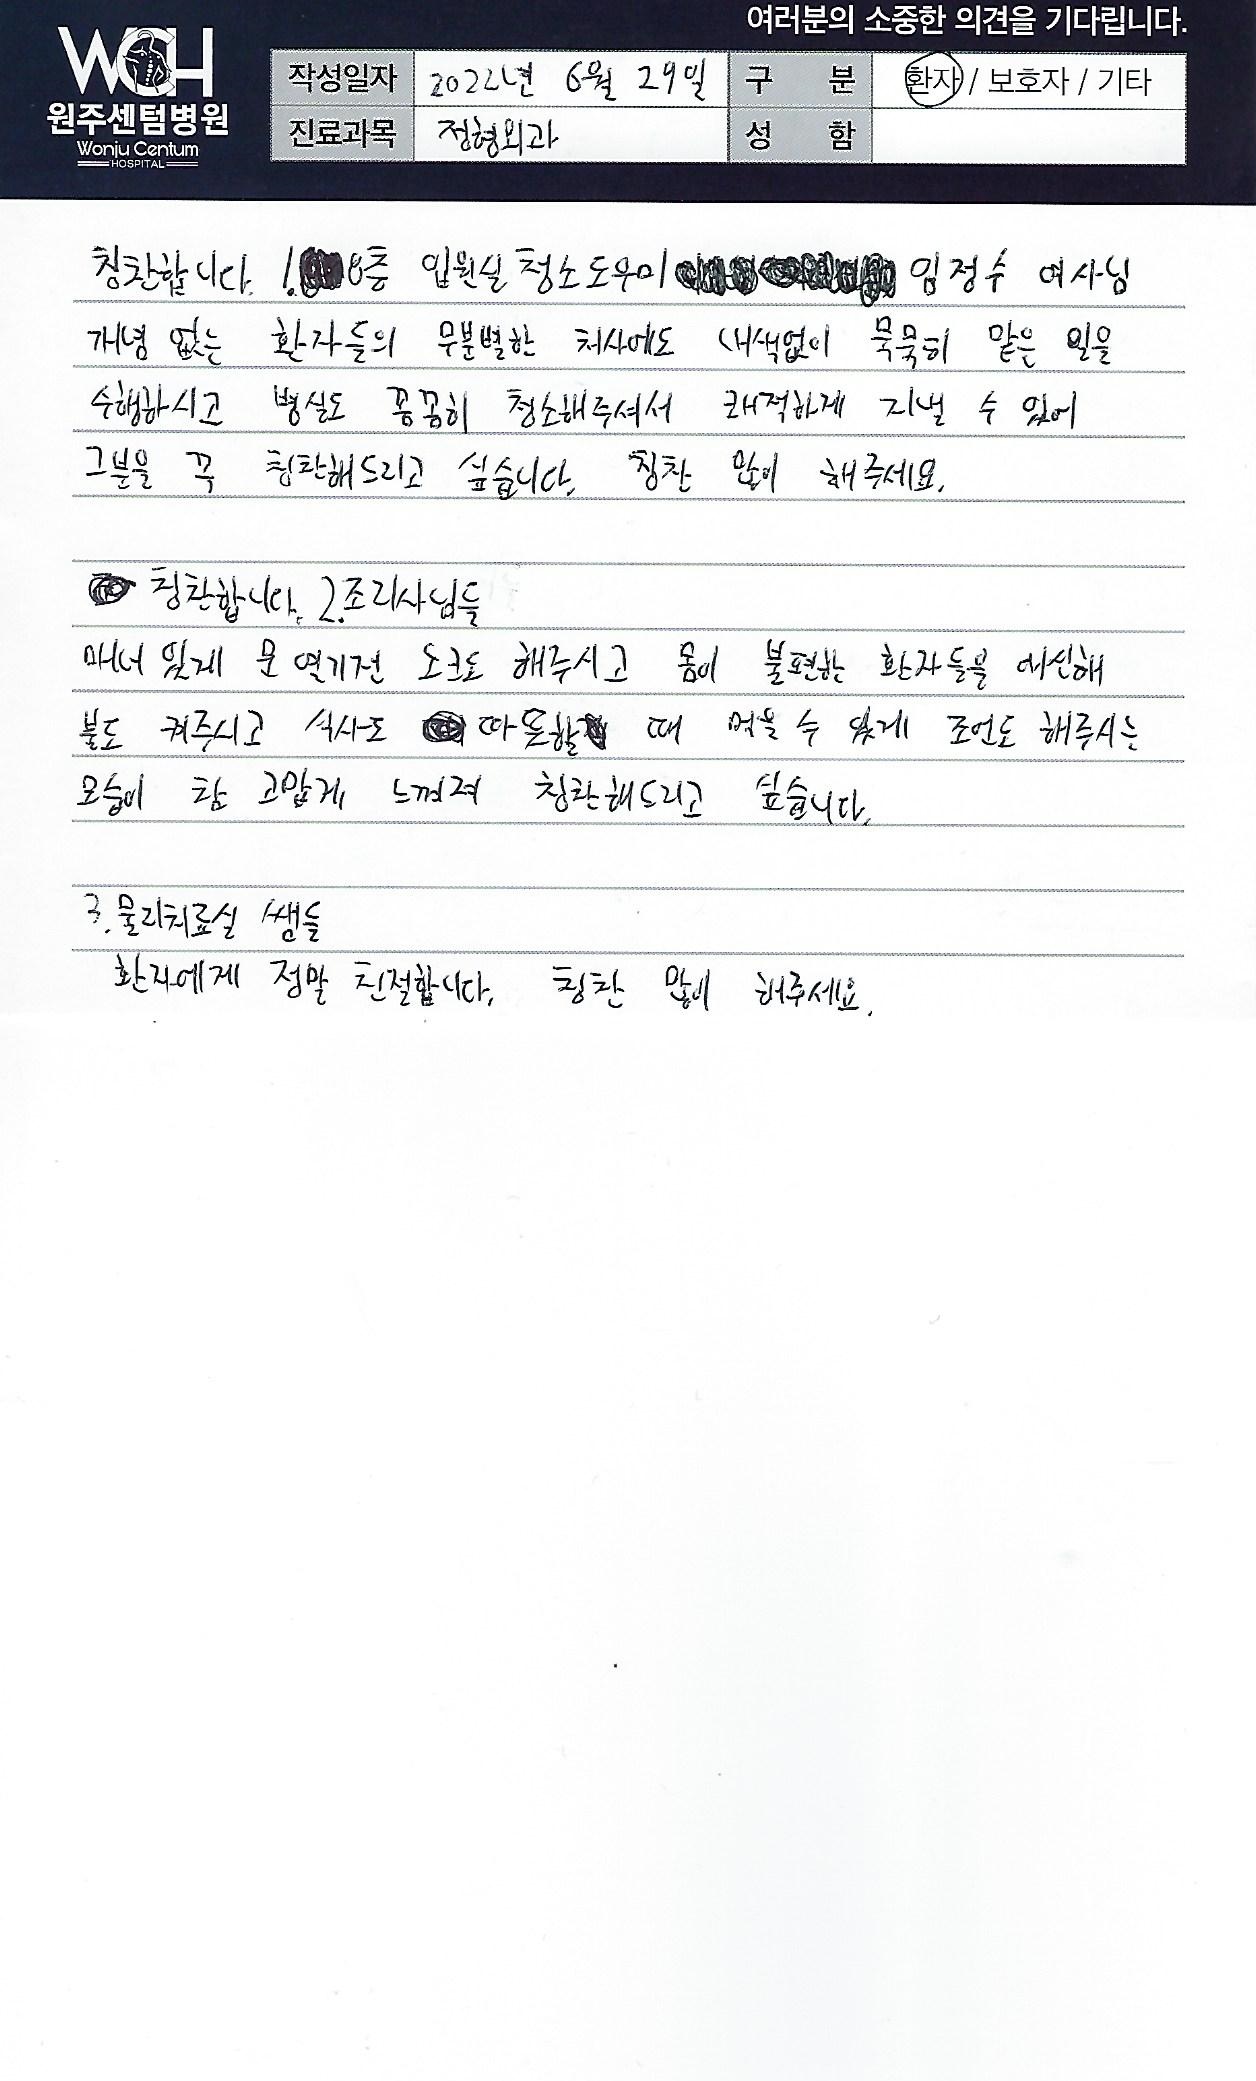 여러분의 소중한 의견을 기다립니다.
WCH
원주센텀병원
Wonju Centum
HOSPITAL
작성일자 2022년 6월 29일 구 분 환자 / 보호자 / 기타
진료과목 정형외과 성 함
칭찬합니다. 1. 8층 입원실 청소도우미 임정수 여사님
개념 없는 환자들의 무분별한 처사에도 내색없이 묵묵히 맡은 일을
수행하시고 병실도 꼼꼼히 청소해주셔서 쾌적하게 지낼 수 있어
그분을 꼭 칭찬해드리고 싶습니다. 칭찬 많이 해주세요.
칭찬합니다. 2. 조리사님들
매너 있게 문 열기전 노크도 해주시고 몸이 불편한 환자들을 대신해
불도 켜주시고 식사도 따뜻할 때 먹을 수 있게 조언도 해주시는
모습이 참 고맙게 느껴져 칭찬해드리고 싶습니다.
3. 물리치료실 쌤들
환자에게 정말 친절합니다. 칭찬 많이 해주세요.